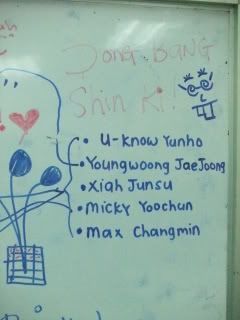 Dong Bang
Shin Ki
• U-Know Yunho
• Youngwoong JaeJoong
• Xiah Junsu
• Micky Yoochun
• Max Changmin